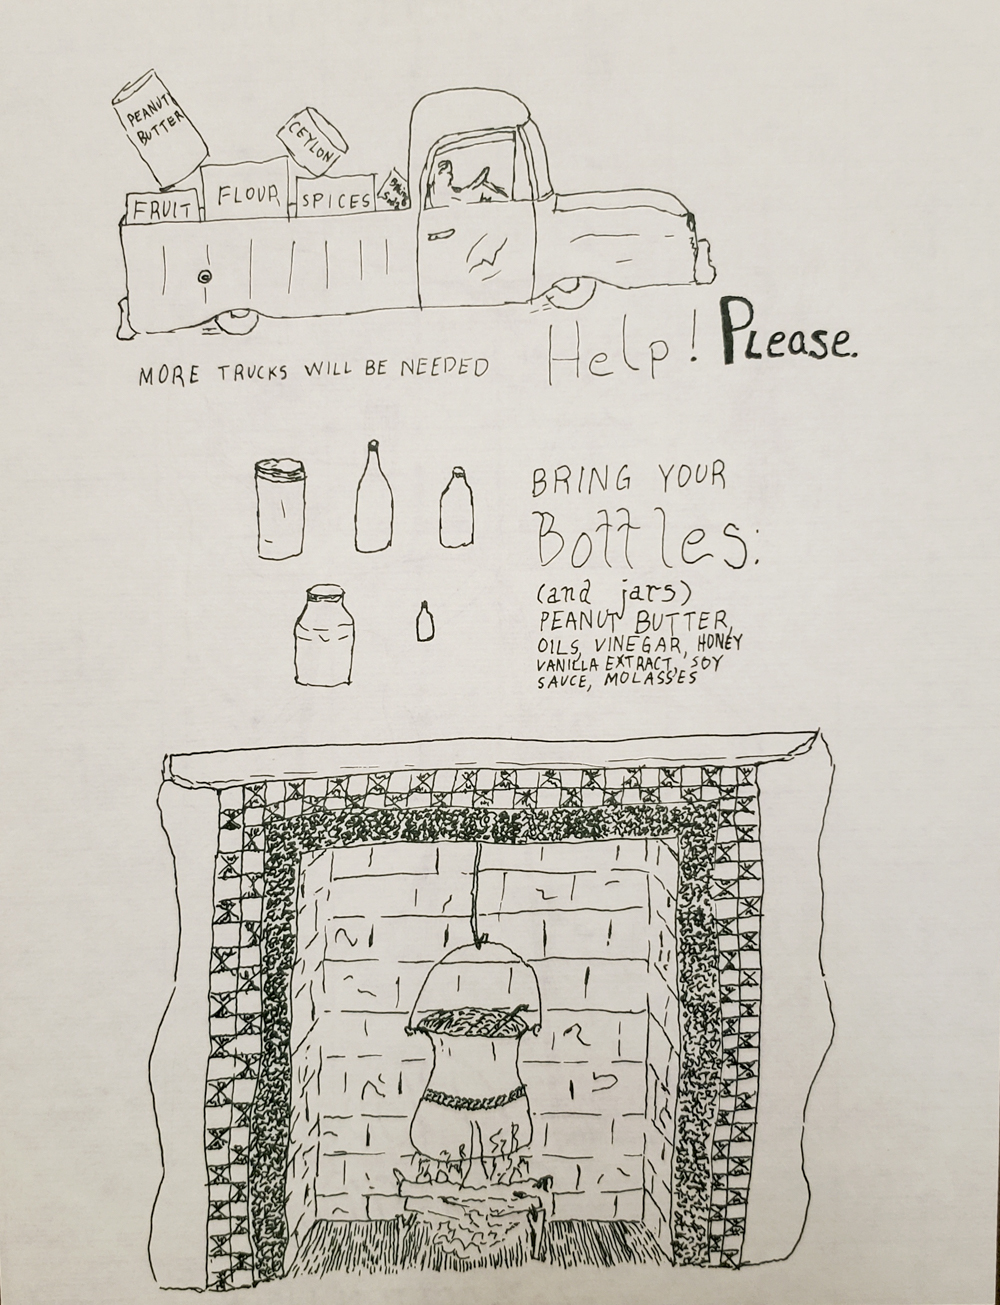 PEANUT
BUTTER
CEYLON
FRUIT
FLOUR
SPICES
Help! Please.
MORE TRUCKS WILL BE NEEDED
BRING YOUR
Bottles:
(and jars)
PEANUT BUTTER,
OILS, VINEGAR, HONEY
VANILLA EXTRACT, SOY
SAUCE, MOLASSES